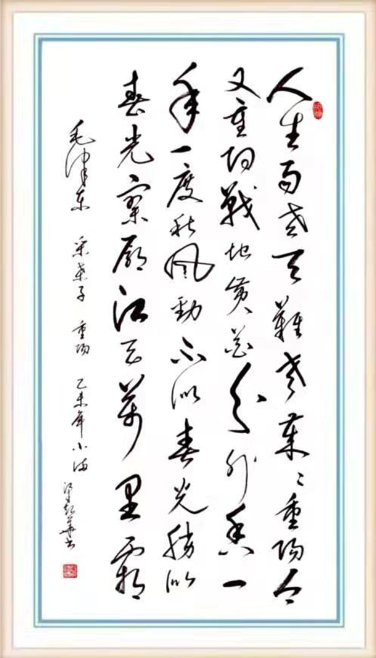 人生易老天難老歲〻重陽今
又重陽戰地黃花分外香一
年一度秋風勁不似春光勝似
春光寥廓江天萬里霜
毛澤东 采桑子 重陽 乙未年小満